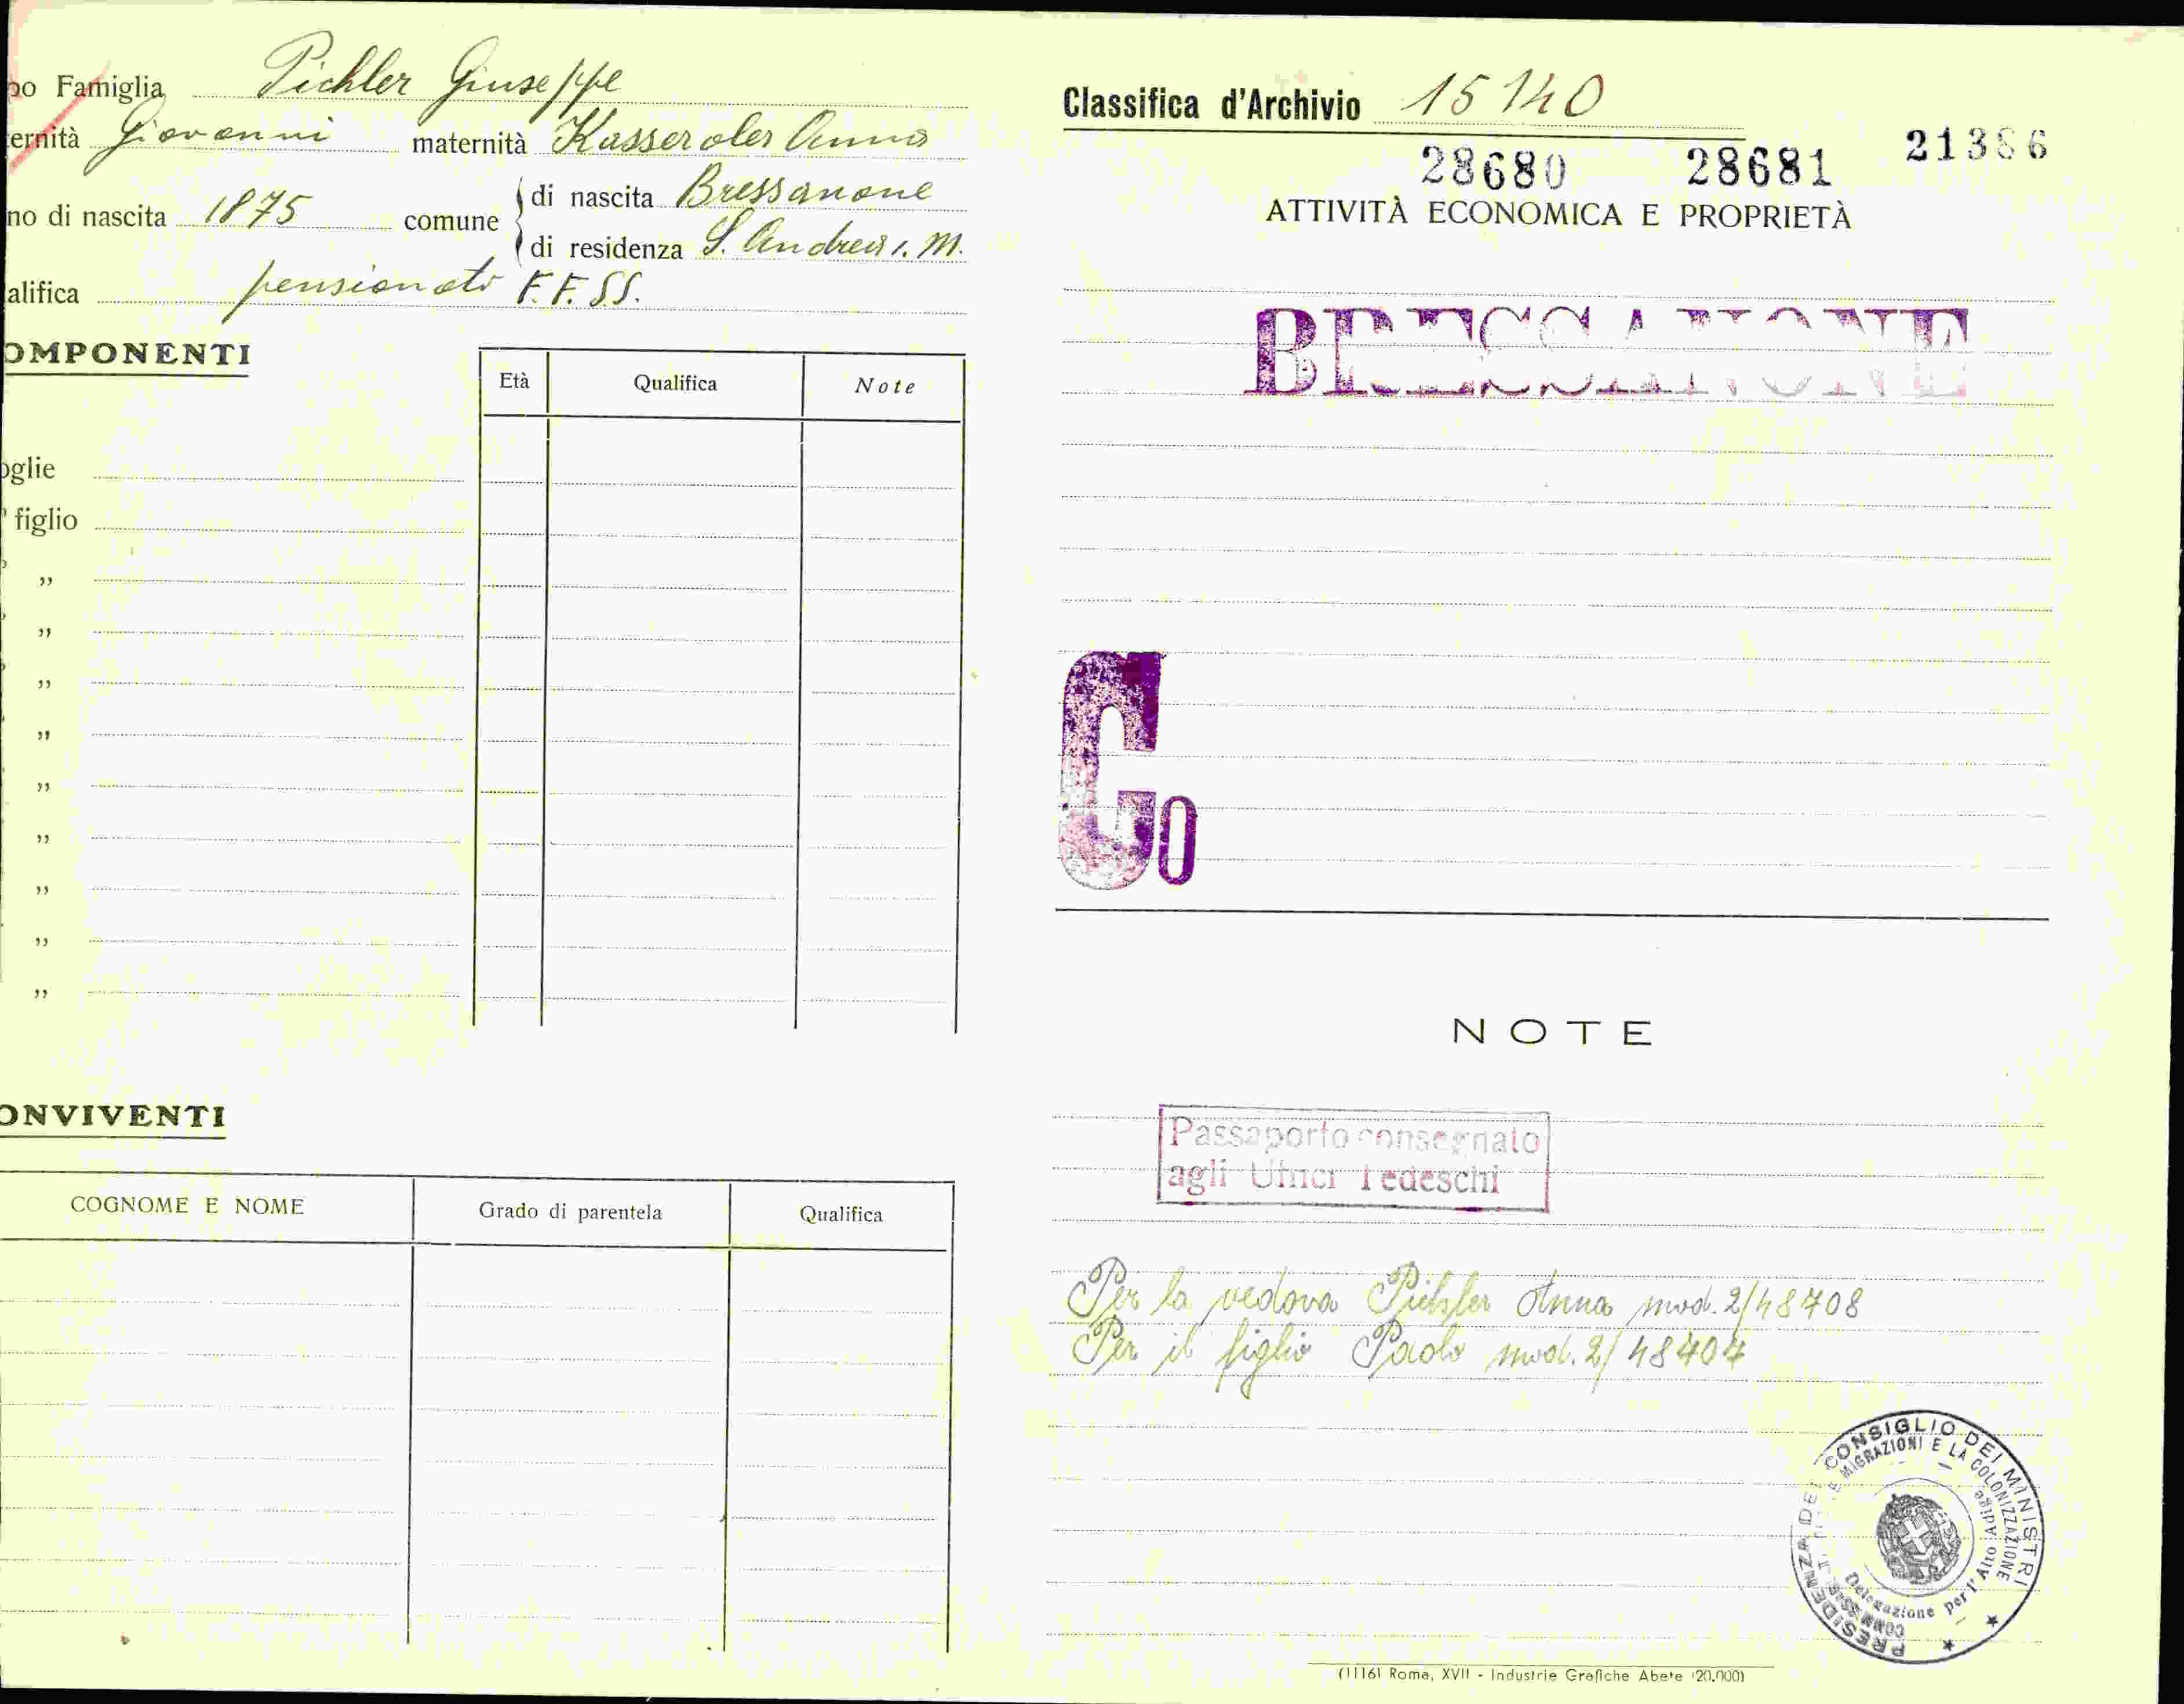 po Famiglia Pichler Giuseppe
ernità Giovanni maternità Kasseroler Anna
no di nascita 1875 comune di nascita Bressanone
di residenza S. Andrea i. M.
alifica pensionato F.F. S.S.
OMPONENTI
Età Qualifica Note
oglie
figlio
"
"
"
"
"
"
"
"
"
ONVIVENTI
COGNOME E NOME Grado di parentela Qualifica
Classifica d'Archivio 15140
28680 28681 21386
ATTIVITÀ ECONOMICA E PROPRIETÀ
BRESSANONE
Go
NOTE
Passaporto consegnato
agli Uffici Tedeschi
Per la vedova Pichler Anna mod. 2/48708
Per il figlio Paolo mod. 2/48707
PRESIDENZA DEL CONSIGLIO DEI MINISTRI
MIGRAZIONI E LA COLONIZZAZIONE
Delegazione per l'Alto Adige
(1116) Roma, XVII - Industrie Grafiche Abete (20.000)